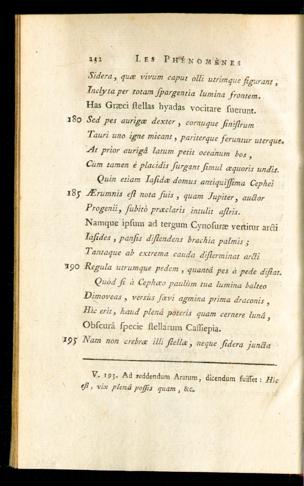 252 LES PHÉNOMÈNES
Sidera, quæ vivum caput olli utrimque figurant,
Inclyta per totam spargentia lumina frontem.
Has Græci stellas hyadas vocitare suerunt.
180 Sed pes aurigæ dexter, cornuque sinistrum
Tauri uno igne micant, pariterque feruntur uterque.
At prior aurigâ latum petit oceanum bos,
Cum tamen è placidis surgant simul æquoris undis.
Quin etiam Iasidæ domus antiquissima Cephei
185 Ærumnis est nota suis, quam Jupiter, auctor
Progenii, subitò præclaris intulit astris.
Namque ipsum ad tergum Cynosuræ vertitur arcti
Iasides, pansis distendens brachia palmis;
Tantaque ab extrema cauda disterminat arcti
190 Regula utrumque pedem, quantò pes à pede distat.
Quòd si à Cephæo paulùm tua lumina balteo
Dimoveas, versus sævi agmina prima draconis,
Hîc erit, haud plenâ poteris quam cernere lunâ,
Obscurâ specie stellarum Cassiepia.
195 Nam non crebræ illi stellæ, neque sidera juncta
V. 193. Ad reddendum Aratum, dicendum fuisset: Hîc
est, vix plenâ possis quam, &c.